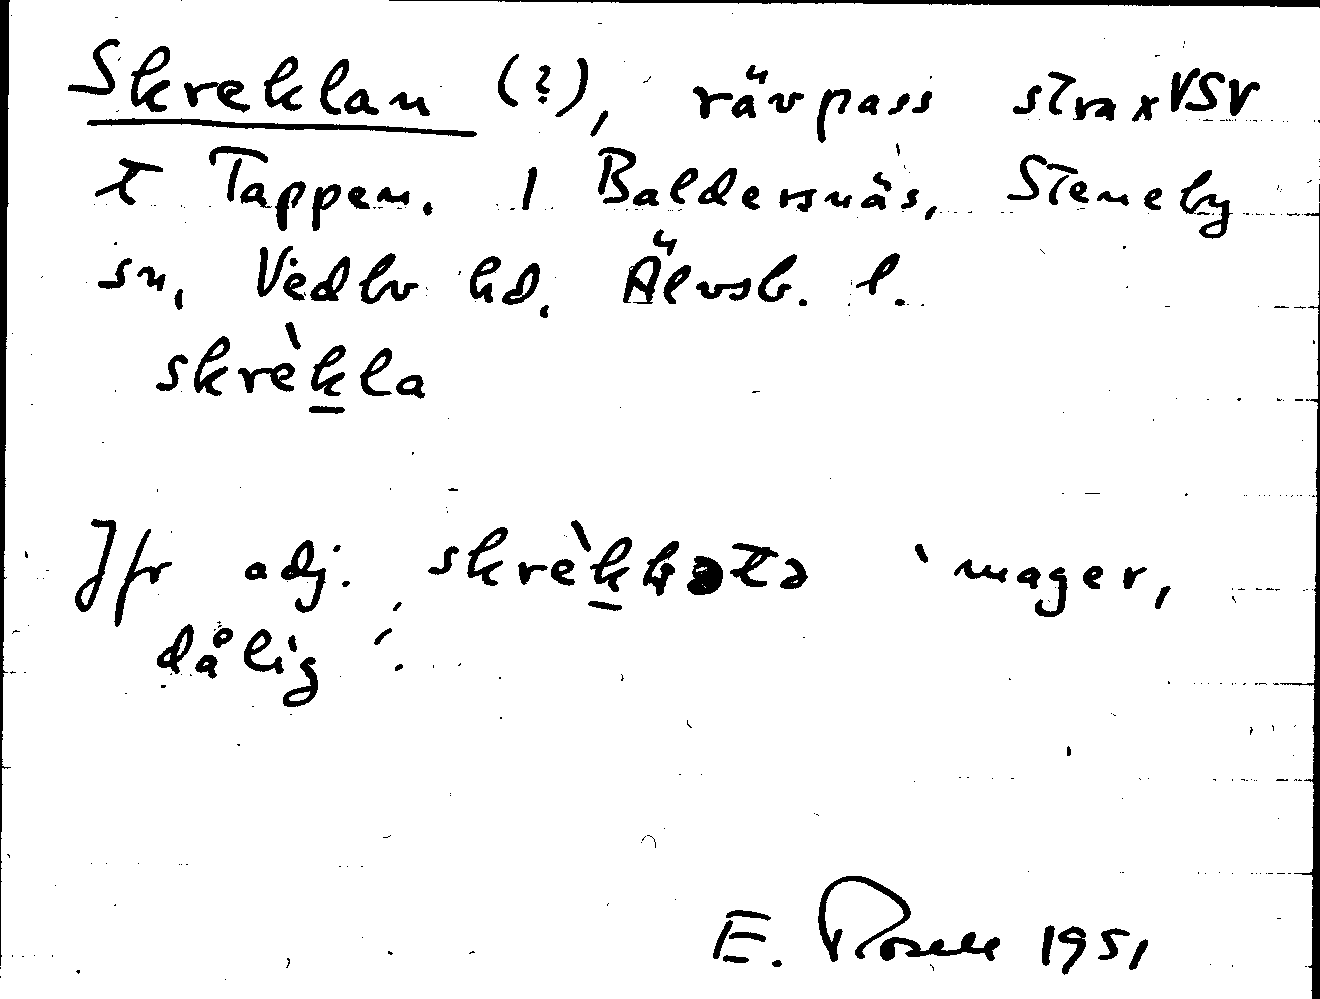 Skreklan (?), rävpass strax VSV
t Tappen. 1 Baldersnäs, Steneby
sn, Vedbo hd, Älvsb. l.
skrèkla
Jfr adj. skrèklətə 'mager,
dålig'.
E. Rosell 1951